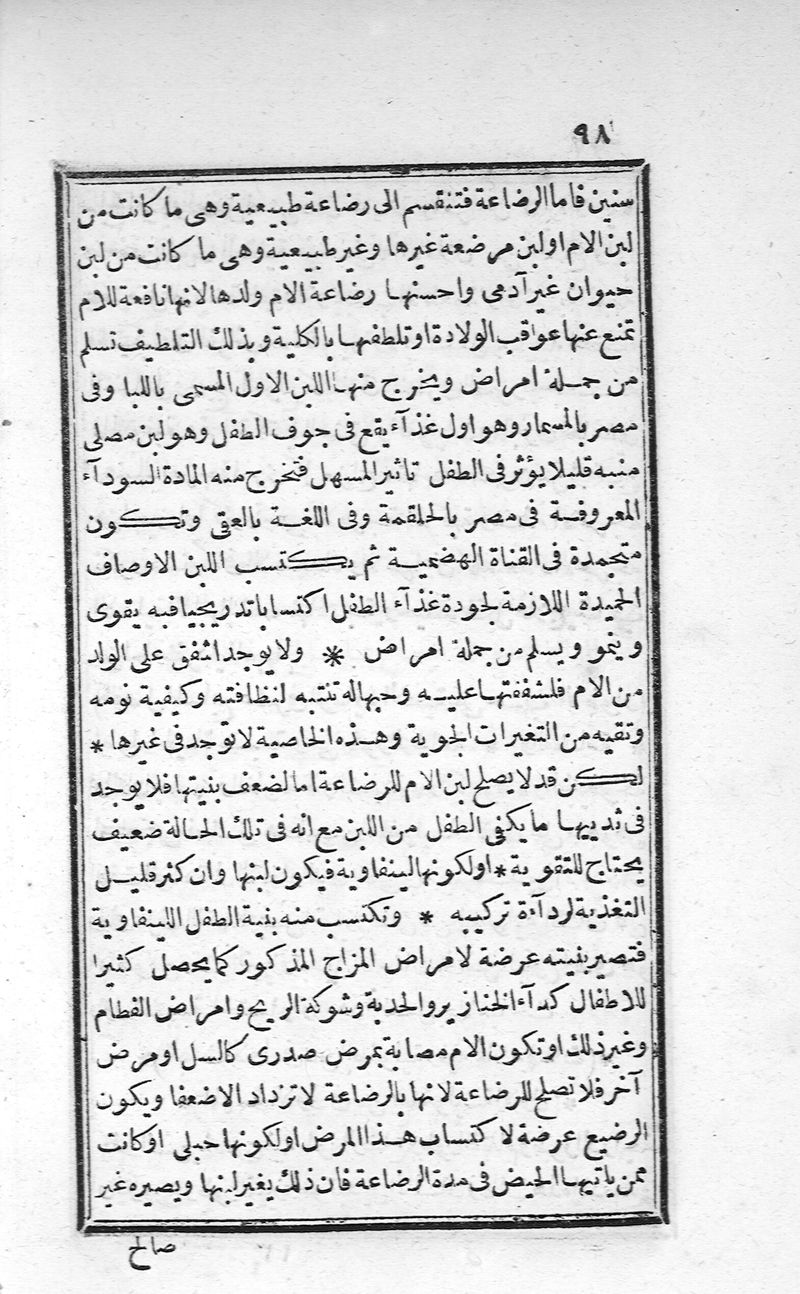 ٩٨
سنين فاما الرضاعة فتنقسم الى رضاعة طبيعية وهى ما كانت من
لبن الام او لبن مرضعة غيرها وغير طبيعية وهى ما كانت من لبن
حيوان غير آدمى واحسنها رضاعة الام ولدها لانها نافعة للام
تمنع عنها عواقب الولادة او تلطفها بالكلية وبذلك التلطيف تسلم
من جملة امراض ويخرج منها اللبن الاول المسمى باللبا وفى
مصر بالمسمار وهو اول غذآء يقع فى جوف الطفل وهو لبن مصلى
منبه قليلا يؤثر فى الطفل تاثير المسهل فتخرج منه المادة السودآء
المعروفة فى مصر بالحلقمة وفى اللغة بالعقى وتكون
متجمدة فى القناة الهضمية ثم يكتسب اللبن الاوصاف
الحميدة اللازمة لجودة غذآء الطفل اكتسابا تدريجيا فبه يقوى
وينمو ويسلم من جملة امراض * ولا يوجد اشفق على الولد
من الام فلشفقتها عليه وحبها له تنتبه لنظافته وكيفية نومه
وتقيه من التغيرات الجوية وهذه الخاصية لا توجد فى غيرها *
لكن قد لا يصلح لبن الام للرضاعة اما لضعف بنيتها فلا يوجد
فى ثدييها ما يكفى الطفل من اللبن مع انه فى تلك الحالة ضعيف
يحتاج للتقوية * او لكونها لينفاوية فيكون لبنها وان كثر قليل
التغذية لردآءة تركيبه * وتكتسب منه بنية الطفل اللينفاوية
فتصير بنيته عرضة لامراض المزاج المذكور كما يحصل كثيرا
للاطفال كدآء الخنازير والحدبة وشوكة الريح وامراض الفطام
وغير ذلك او تكون الام مصابة بمرض صدرى كالسل او مرض
آخر فلا تصلح للرضاعة لانها بالرضاعة لا تزداد الا ضعفا ويكون
الرضيع عرضة لاكتساب هذا المرض او لكونها حبلى او كانت
ممن ياتيها الحيض فى مدة الرضاعة فان ذلك يغير لبنها ويصيره غير
صالح